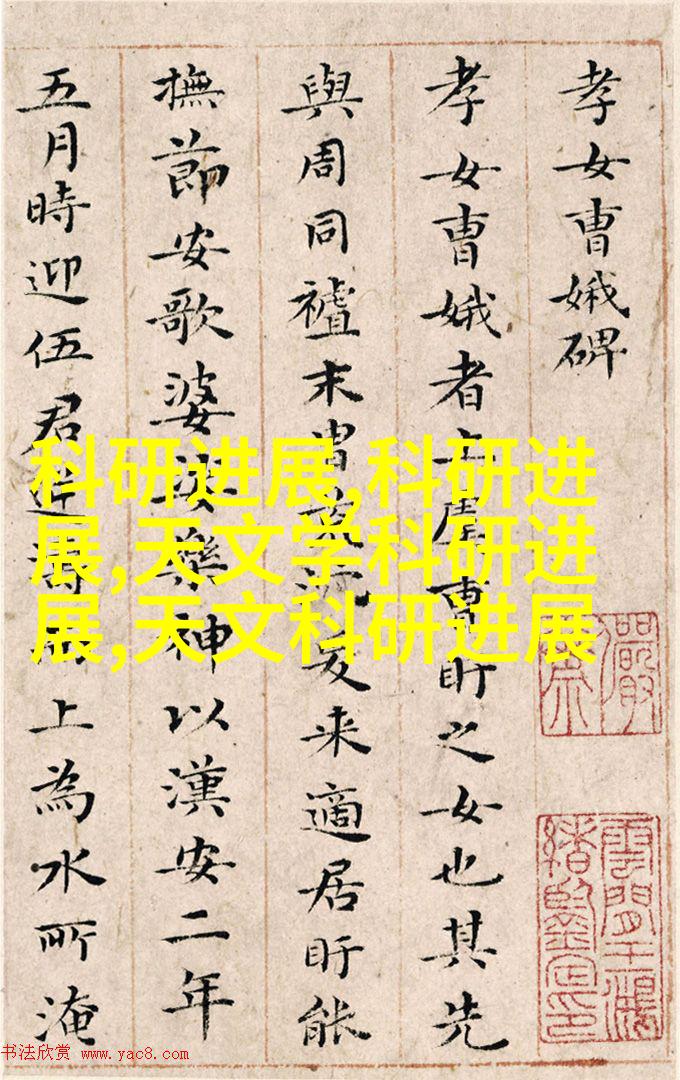 孝女曹娥碑
孝女曹娥者上虞曹盱之女也其先
與周同禮末胄荒沉爰来適居盱能
撫節安歌婆娑樂神以漢安二年
五月時迎伍君逆濤而上為水所淹
科研进展,科研进
展,天文学科研进
展,天文科研进展
书法欣赏 www.yac8.com